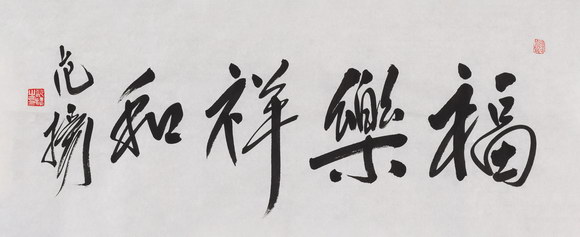 福樂祥和
范揚